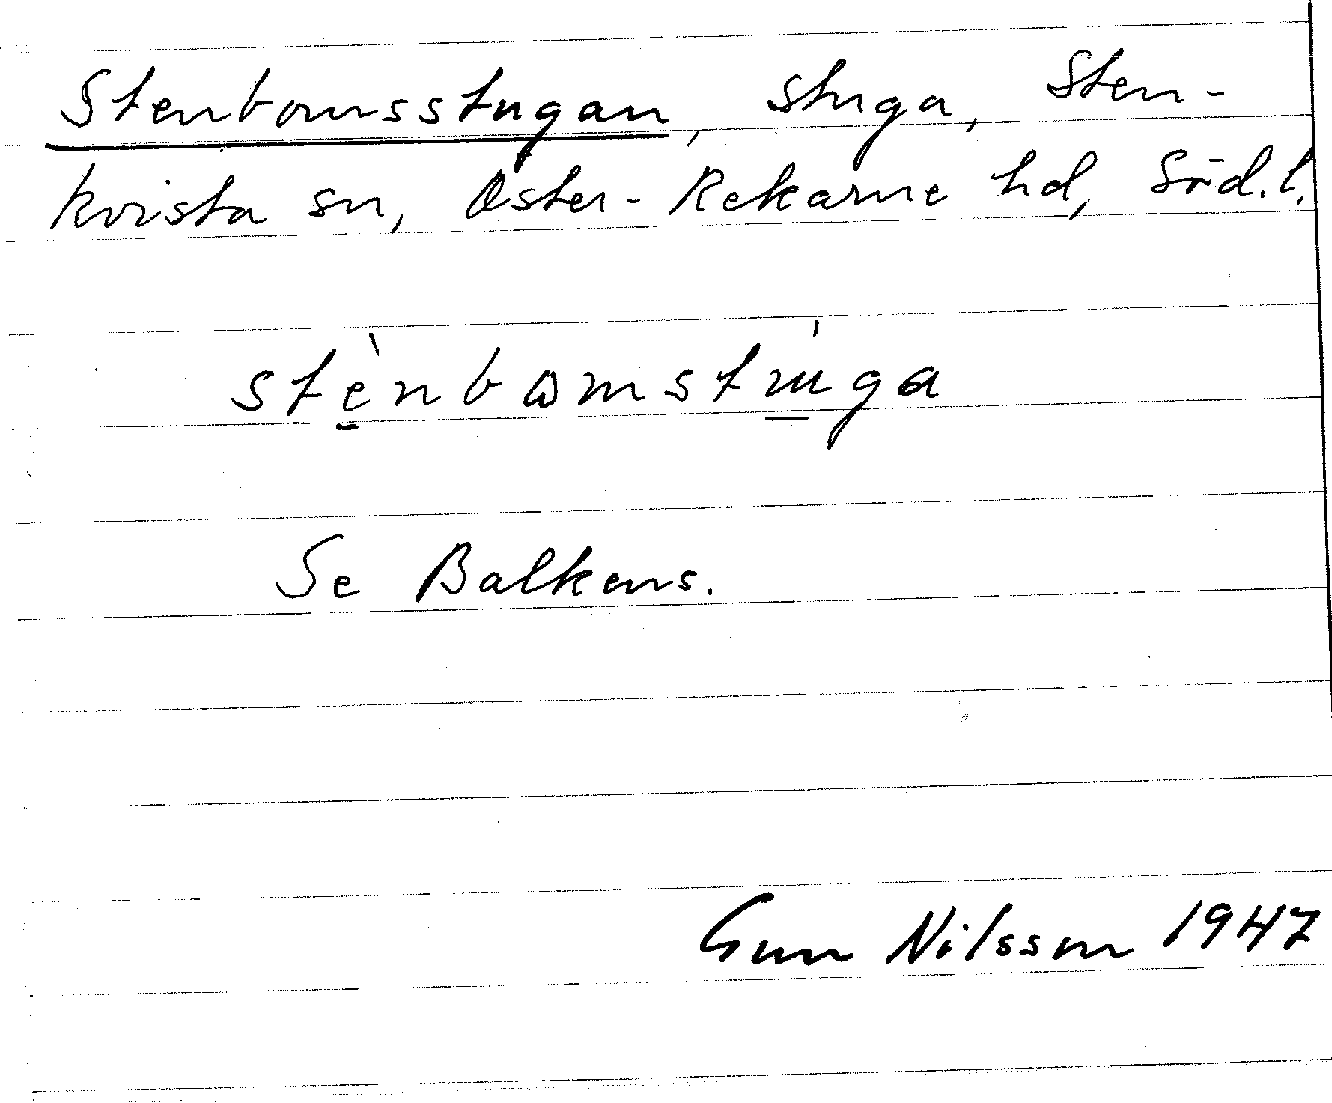 Stenbomsstugan, stuga, Sten-
kvista sn, Öster-Rekarne hd, Söd.l.
stè̱nbωmstú̱ga
Se Balkens.
Gun Nilsson 1947